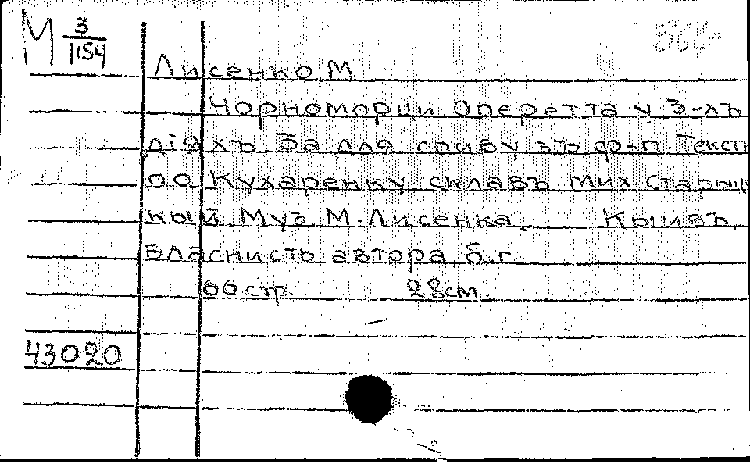 М 3/1154
Лисенко М
Чорноморци Оперетта у 3-хъ
діяхъ для спиву зъ ф-п Текст
по Кухаренку склавъ Мих Стариц
кый Муз М. Лисенка. Кыивъ,
Власнисть автора б.г.
66 стр. 28 см.
43020